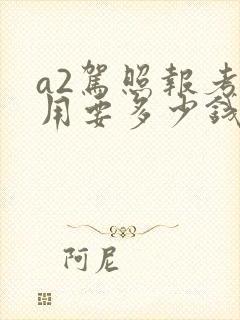 a2駕照報考
用要多少錢
阿尼